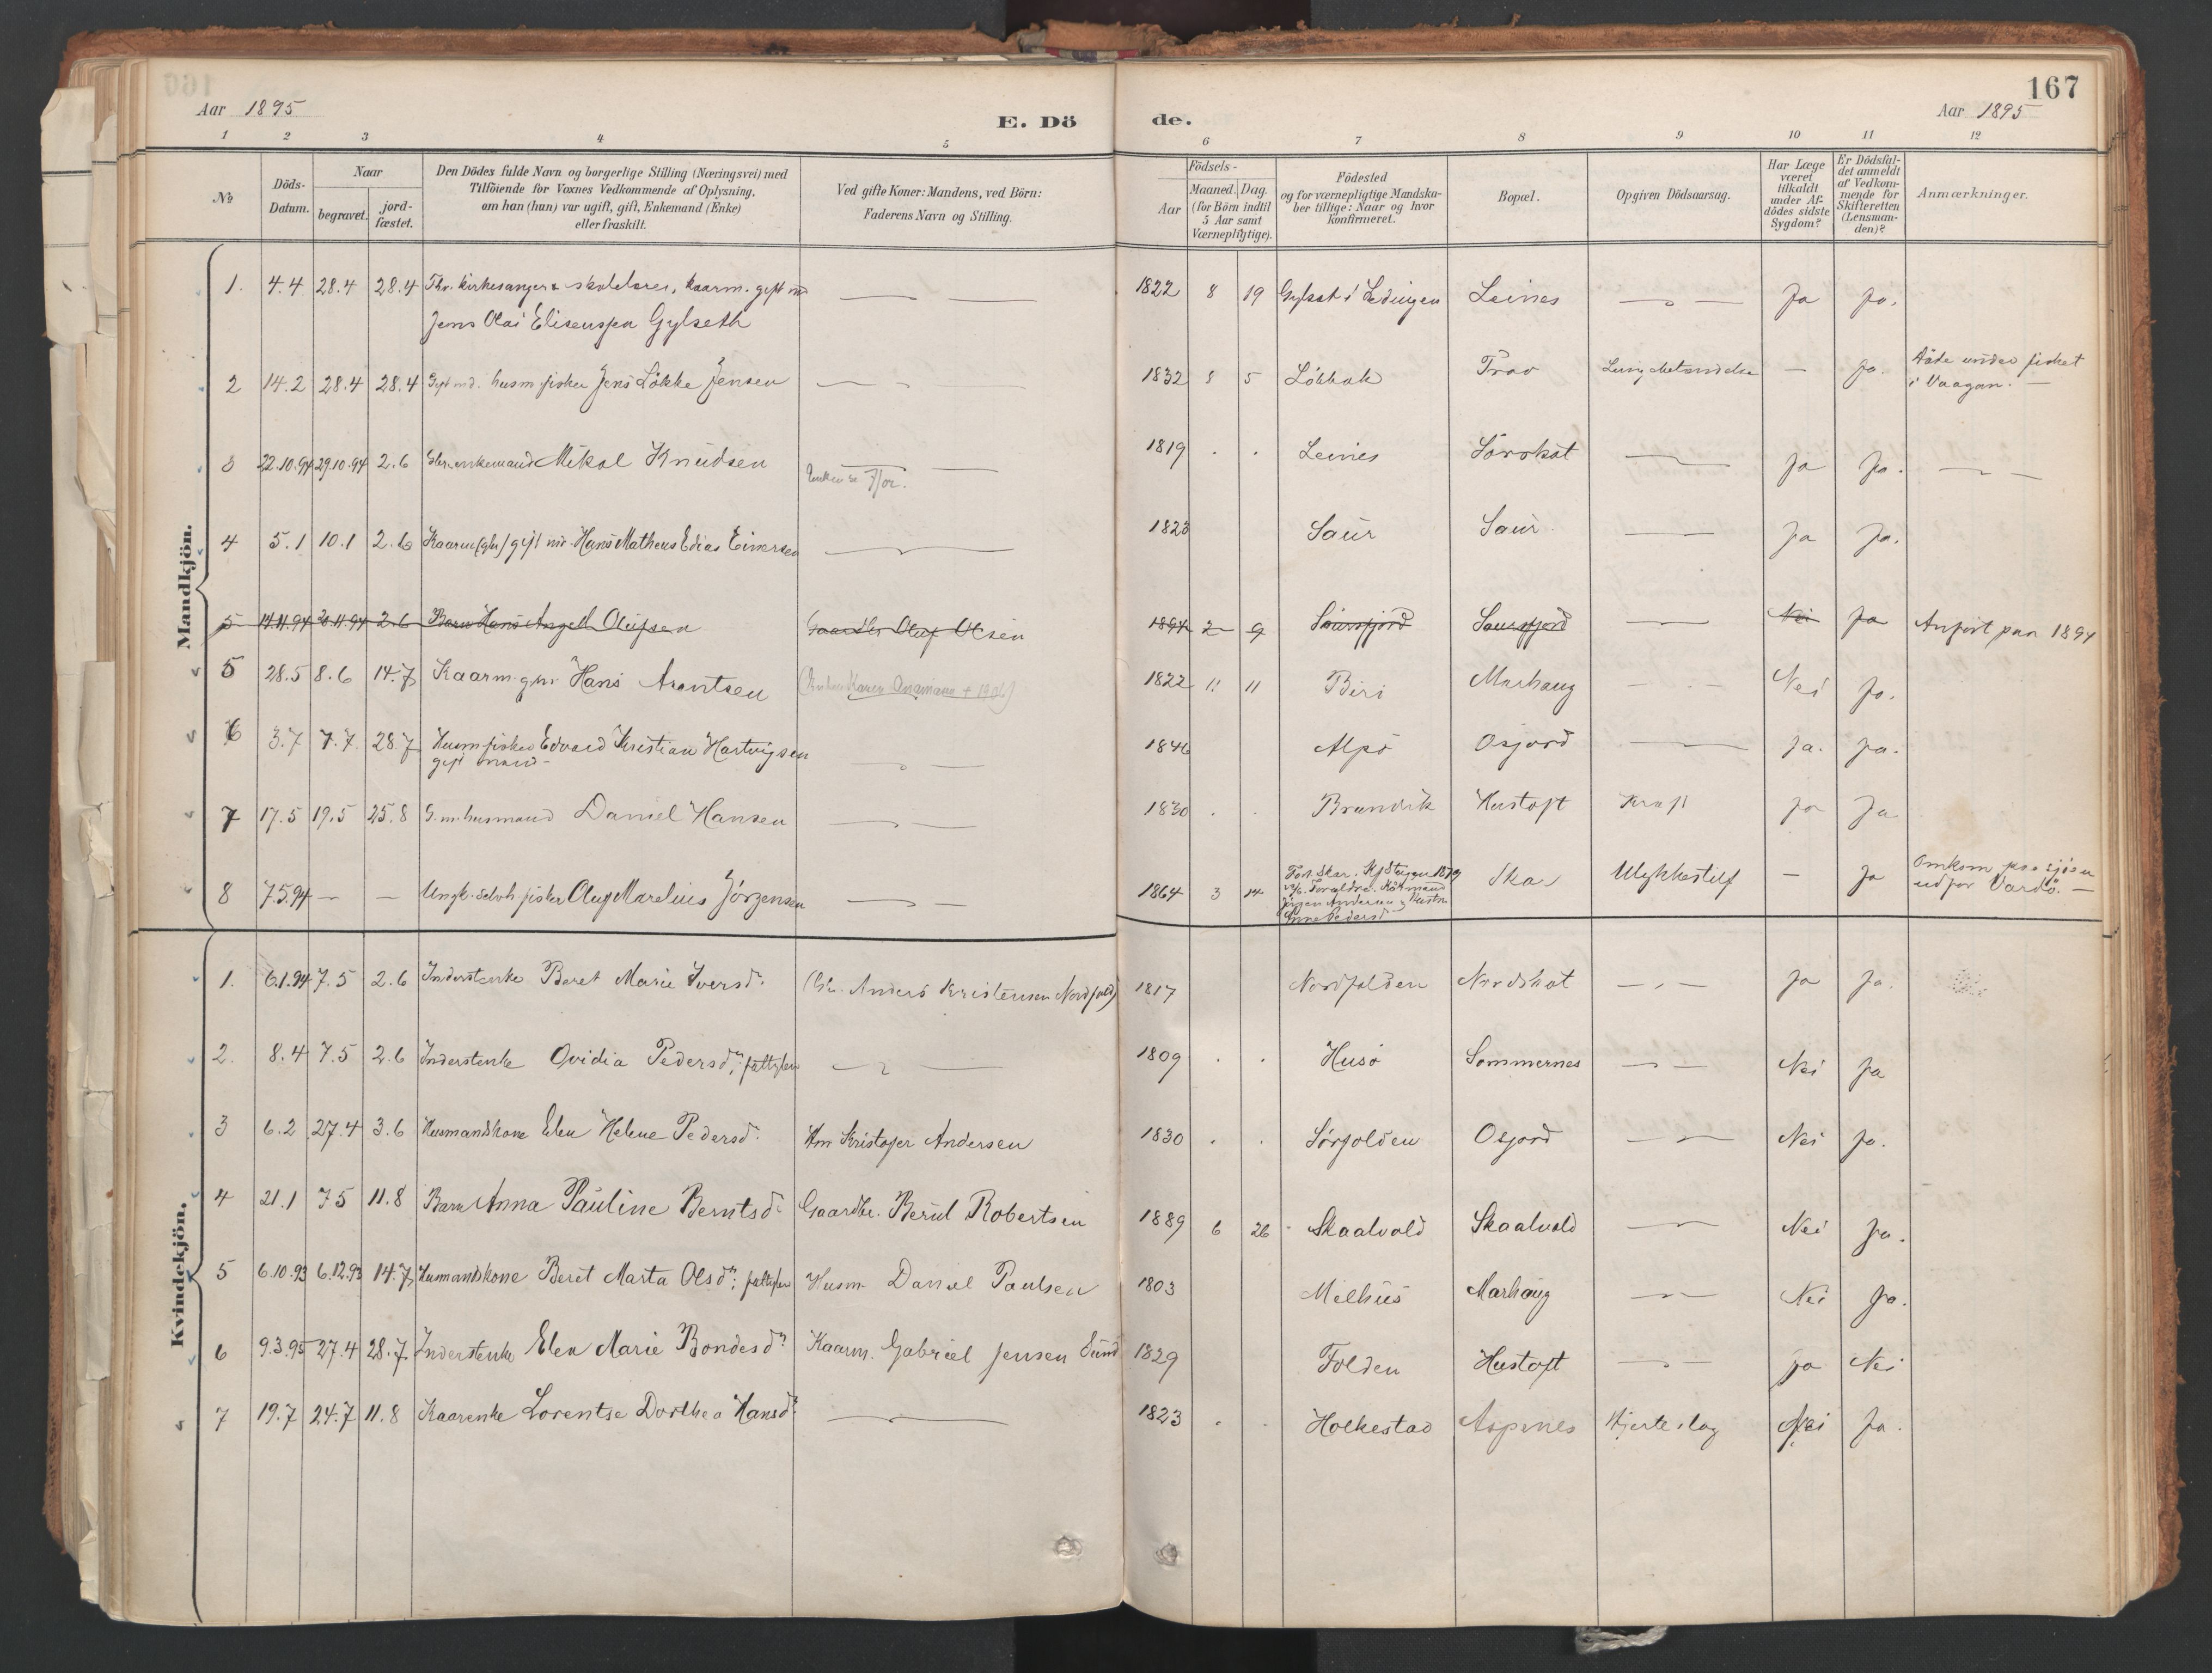 167
Aar 1895
E. Dö
de.
Aar 1895
1 2 3 4 5 6 7 8 9 10 11 12
No
Döds-
Datum.
Naar
begravet.
jord-
fæstet.
Den Dödes fulde Navn og borgerlige Stilling (Næringsvei) med
Tilföiende for Voxnes Vedkommende af Oplysning.
om han (hun) var ugift, gift, Enkemand (Enke)
eller fraskilt.
Ved gifte Koner: Mandens, ved Börn:
Faderens Navn og Stilling.
Födsels-
Aar
Maaned. Dag.
(for Börn indtil
5 Aar samt
Værnepligtige).
Födested
og for værnepligtige Mandska-
ber tillige: Naar og hvor
konfirmeret.
Bopæl.
Opgiven Dödsaarsag.
Har Læge
været
tilkaldt
under Af-
dödes sidste
Sygdom?
Er Dödsfal-
det anmeldt
af Vedkom-
mende for
Skifteretten
(Lensman-
den)?
Anmærkninger.
Mandkjön.
1. 4.4 28.4 28.4 Fhv. kirkesanger & skolelærer, kaarm. gift md 1822 8 19 i Lødingen Leines Ja Ja.
Jens Olai Elisenssen Gylseth
2 14.2 28.4 28.4 Gift md. husm. fisker Jens Løkke Jensen 1832 8 5 Løkhak Trao Lungebetændelse — Ja. Døde under fisket
i Vaagan. —
3 22.10.94 29.10.94 2.6 Gbr. enkemand Mikal Knudsen 1819 . . Leines Sørskot Ja Ja.
4 5.1 10.1 2.6 Kaarm (gbr) gift md. Hans Matheus Edias Einersen 1823 Saur Saur Ja Ja.
5 14.11.94 20.11.94 2.6 Barn Hans Angell Olufsen Gaardbr Oluf Olsen 1894 2 9 Saursfjord Saursfjord Nei Ja Anført paa 1894
5 28.5 8.6 14.7 Kaarm. g.m. Hans Arentsen (Enken Karen Anamana + 1906) 1822 11 11 Biri Marhaug Nei Ja.
6 3.7 7.7. 28.7 Husm. fisker Edvard Kristian Hartvigsen 1846 Alpø Osjord Ja. Ja.
gift mand —
7 17.5 19.5 25.8 G.m. husmand Daniel Hansen 1830 . . Brandvik Hustoft Kræft Ja Ja
8 7.5.94 — — Ungk. selvh. fisker Oluf Marelius Jørgensen 1864 3 14 Født Skar. Kf Steigen 1879
Forældre: Husmand
Jørgen Andersen & Hustru
Anne Pedersd Skar Ulykkestilf — Ja Omkom paa sjøen
udfor Vardø. —
Kvindekjön.
1. 6.1.94 7.5 2.6 Inderstenke Beret Marie Iversd. (Gm. Anders Kristensen Nordfold) 1817 Nordfolden Nordskot Ja Ja.
2. 8.4 7.5 2.6 Inderstenke Ovidia Pedersd., fattiglem 1809 . . Husø Sommernes Nei Ja
3 6.2 27.4 3.6 Husmandskone Elen Helene Pedersd. Hm Kristofer Andersen 1830 . . Sørfolden Osjord Nei Ja.
4 21.1 7.5 11.8 Barn Anna Pauline Berntsd. Gaardbr. Berul Robertsen 1889 6 26 Skaalvold Skaalvold Nei Ja.
5 6.10.93 6.12.93 14.7 Husmandskone Beret Marta Olsd., fattiglem Husm. Daniel Paulsen 1803 Melhus Marhaug Nei Ja.
6 9.3.95 27.4 28.7. Inderstenke Elen Marie Bondesd. Kaarm. Gabriel Jensen Sund 1829 Folden Hustoft Ja Nei
7 19.7 24.7 11.8 Kaarenke Lorentse Dorthea Hansd. 1823 . . Holkestad Aspenes Hjerteslag Nei Ja.